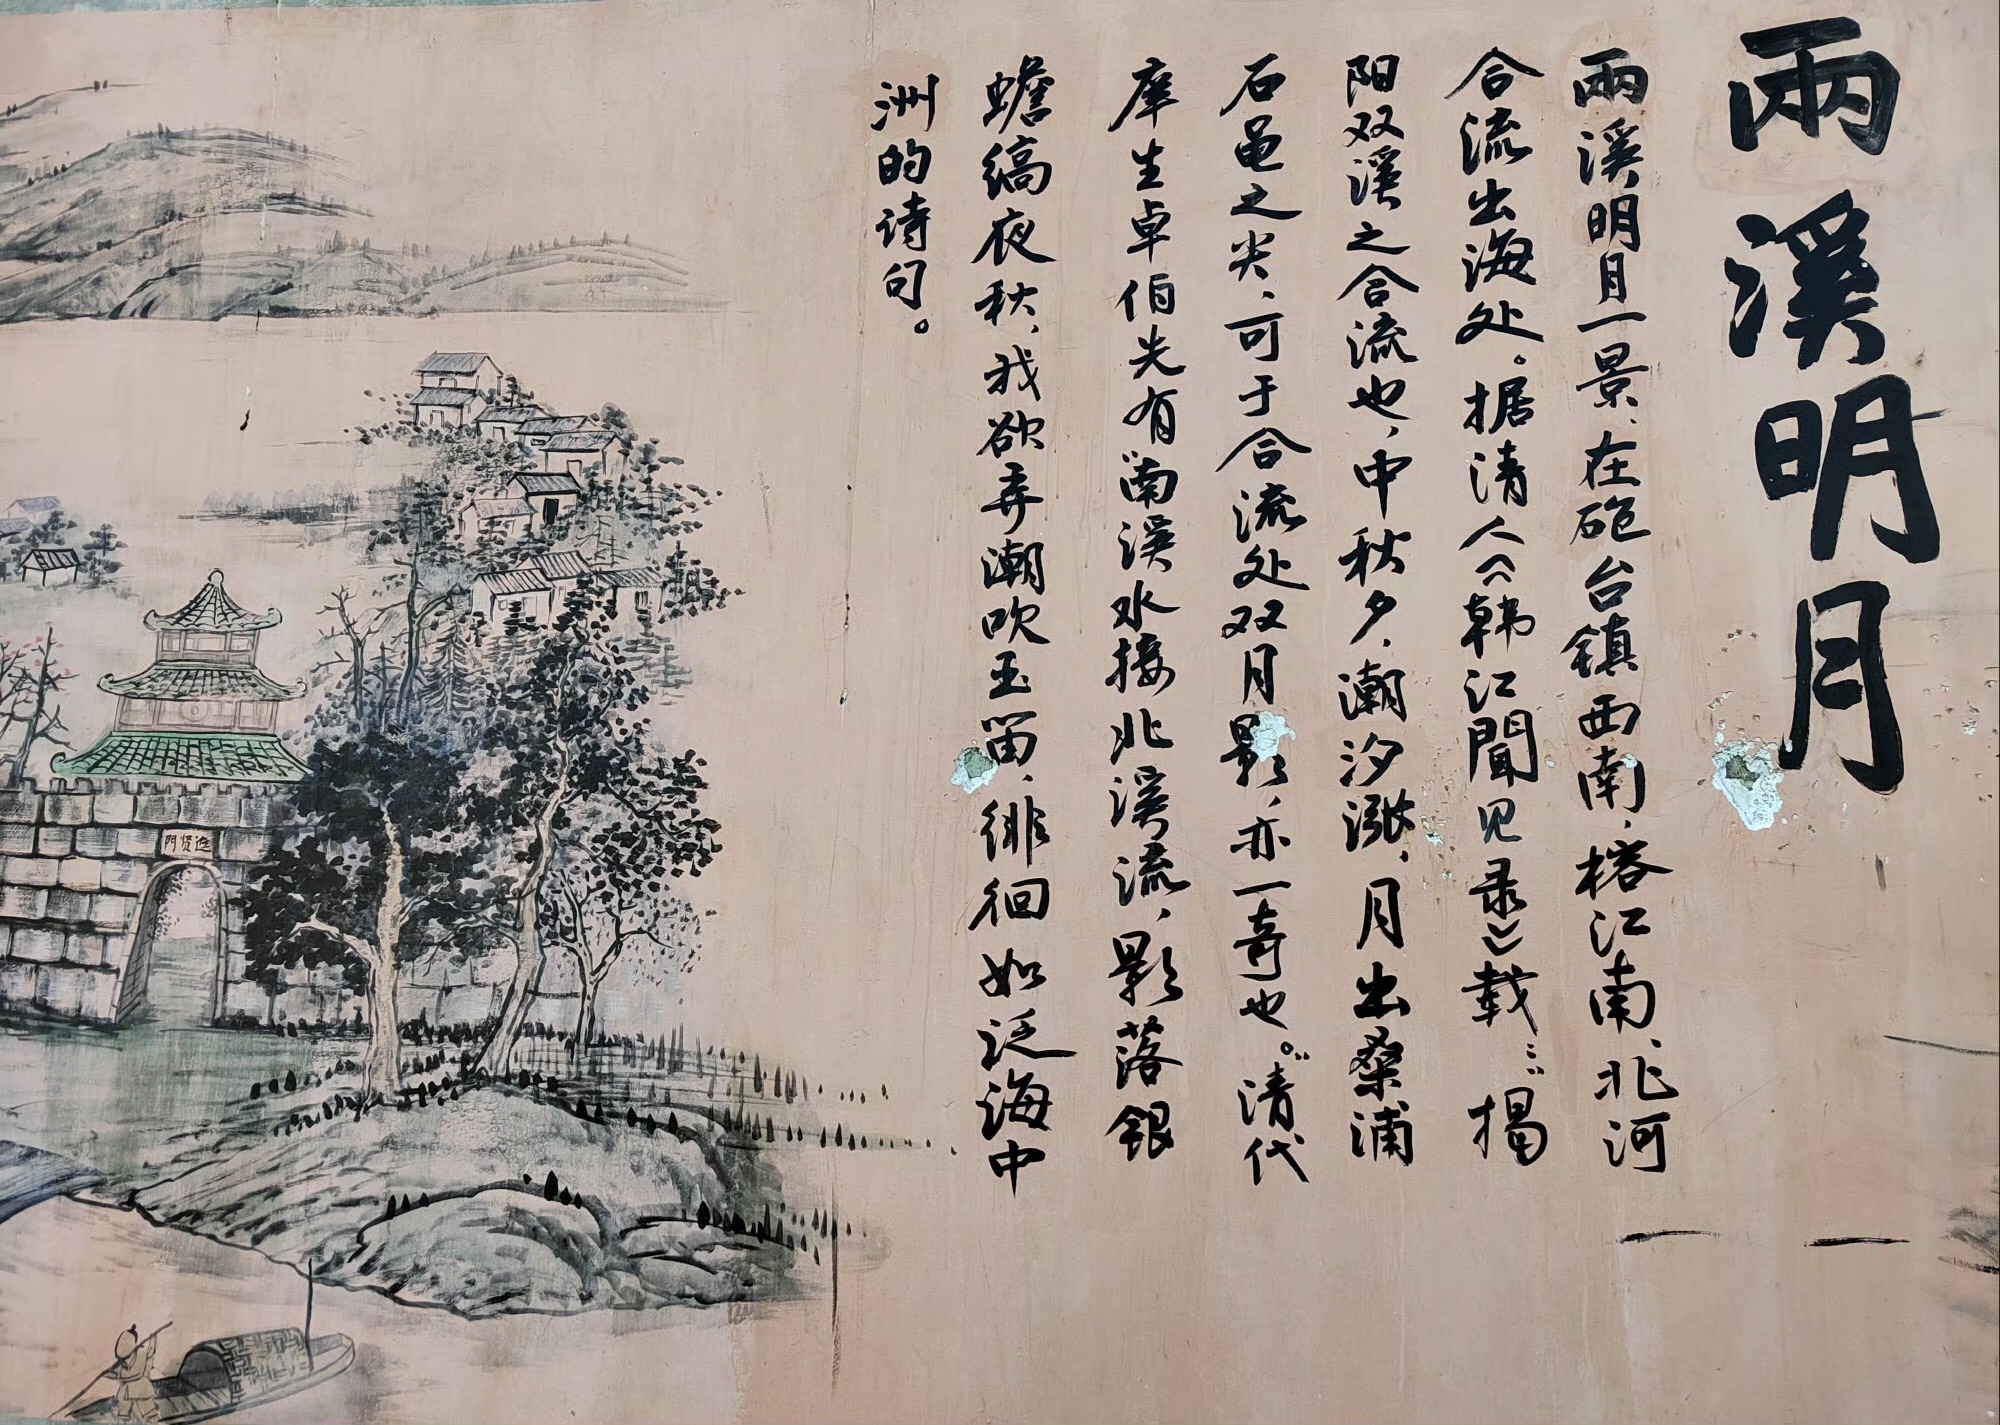 兩溪明月
兩溪明月一景、在砲台镇西南，榕江南、北河
合流出海处。据清人《韩江聞见录》载：“揭
阳双溪之合流也，中秋夕，潮汐涨，月出桑浦
石黾之尖，可于合流处双月影，亦一奇也。”清代
庠生卓伯先有“南溪水接北溪流，影落银
蟾缟夜秋，我欲弄潮吹玉笛，徘徊如泛海中
洲的诗句。
進贤門